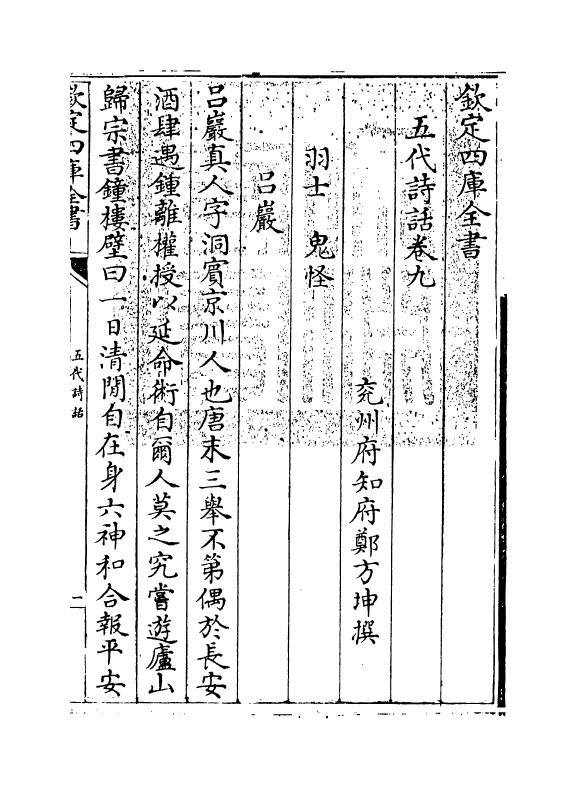 欽定四庫全書
五代詩話卷九
兖州府知府鄭方坤撰
羽士　鬼怪
呂巖
呂巖真人字洞賓京川人也唐末三舉不第偶於長安
酒肆遇鍾離權授以延命術自爾人莫之究嘗遊廬山
歸宗書鐘樓壁曰一日清閒自在身六神和合報平安
欽定四庫全書
五代詩話